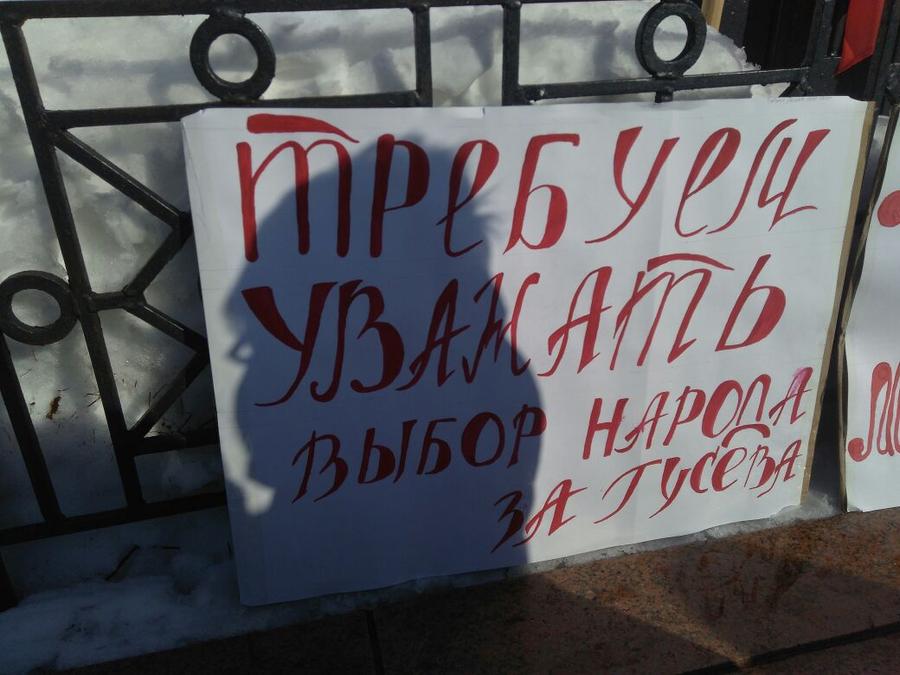 требуем
уважать
выбор народа
за Гусева